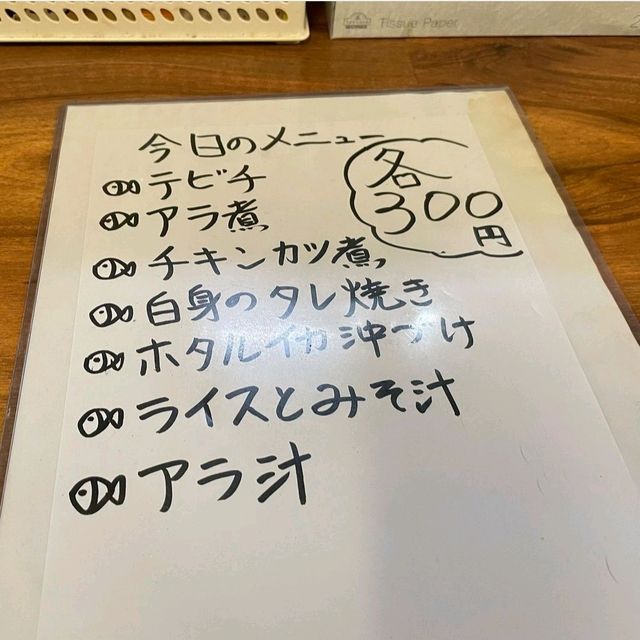 Tissue Paper
今日のメニュー
各
300
円
テビチ
アラ煮
チキンカツ煮
白身のタレ焼き
ホタルイカ沖づけ
ライスとみそ汁
アラ汁